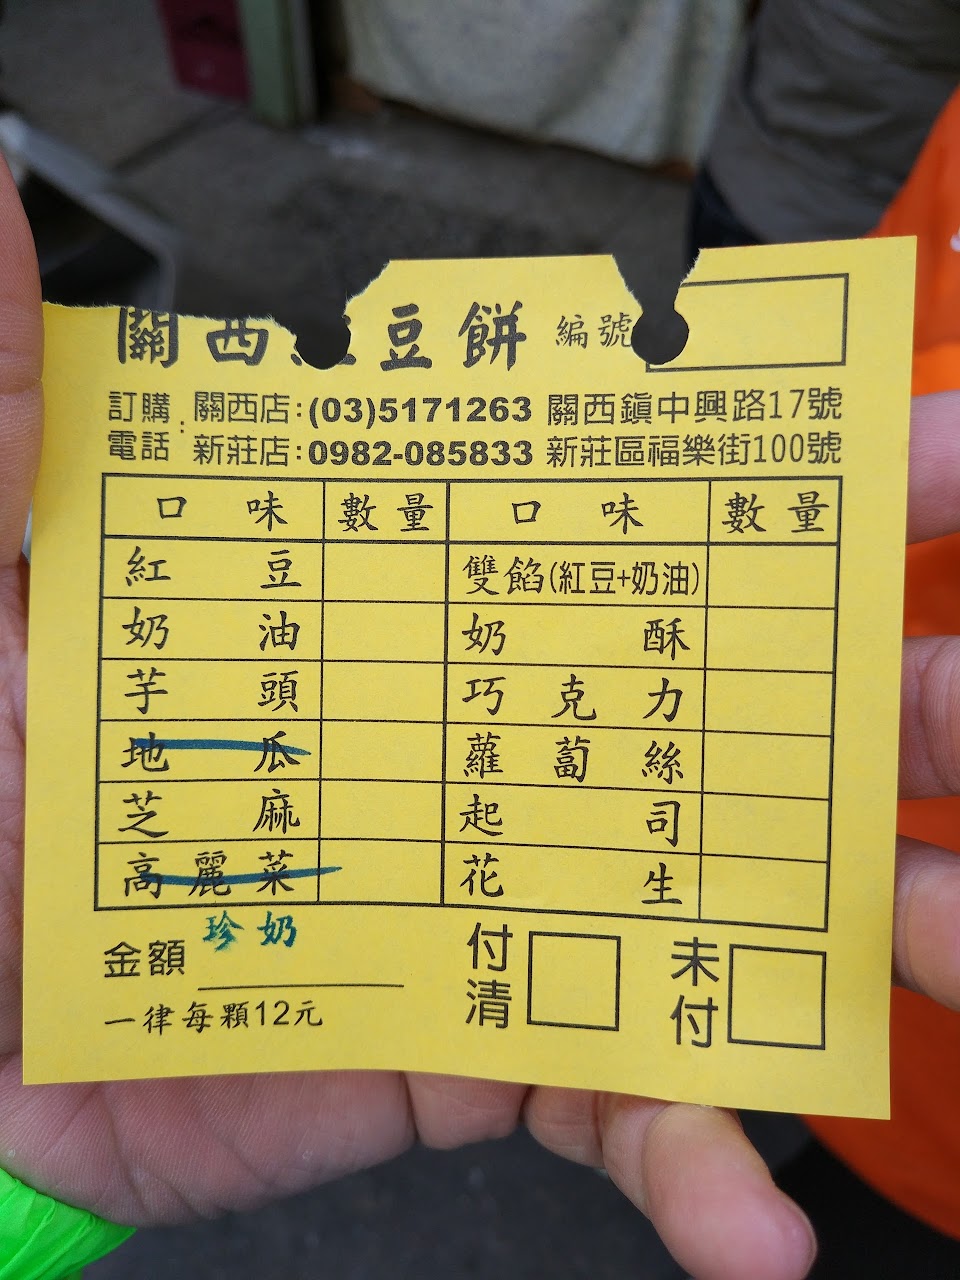 關西 豆餅 編號
訂購電話: 關西店:(03)5171263 關西鎮中興路17號
新莊店:0982-085833 新莊區福樂街100號
口味 數量 口味 數量
紅豆 雙餡(紅豆+奶油)
奶油 奶酥
芋頭 巧克力
地瓜 蘿蔔絲
芝麻 起司
高麗菜 花生
珍奶
金額 付清 未付
一律每顆12元